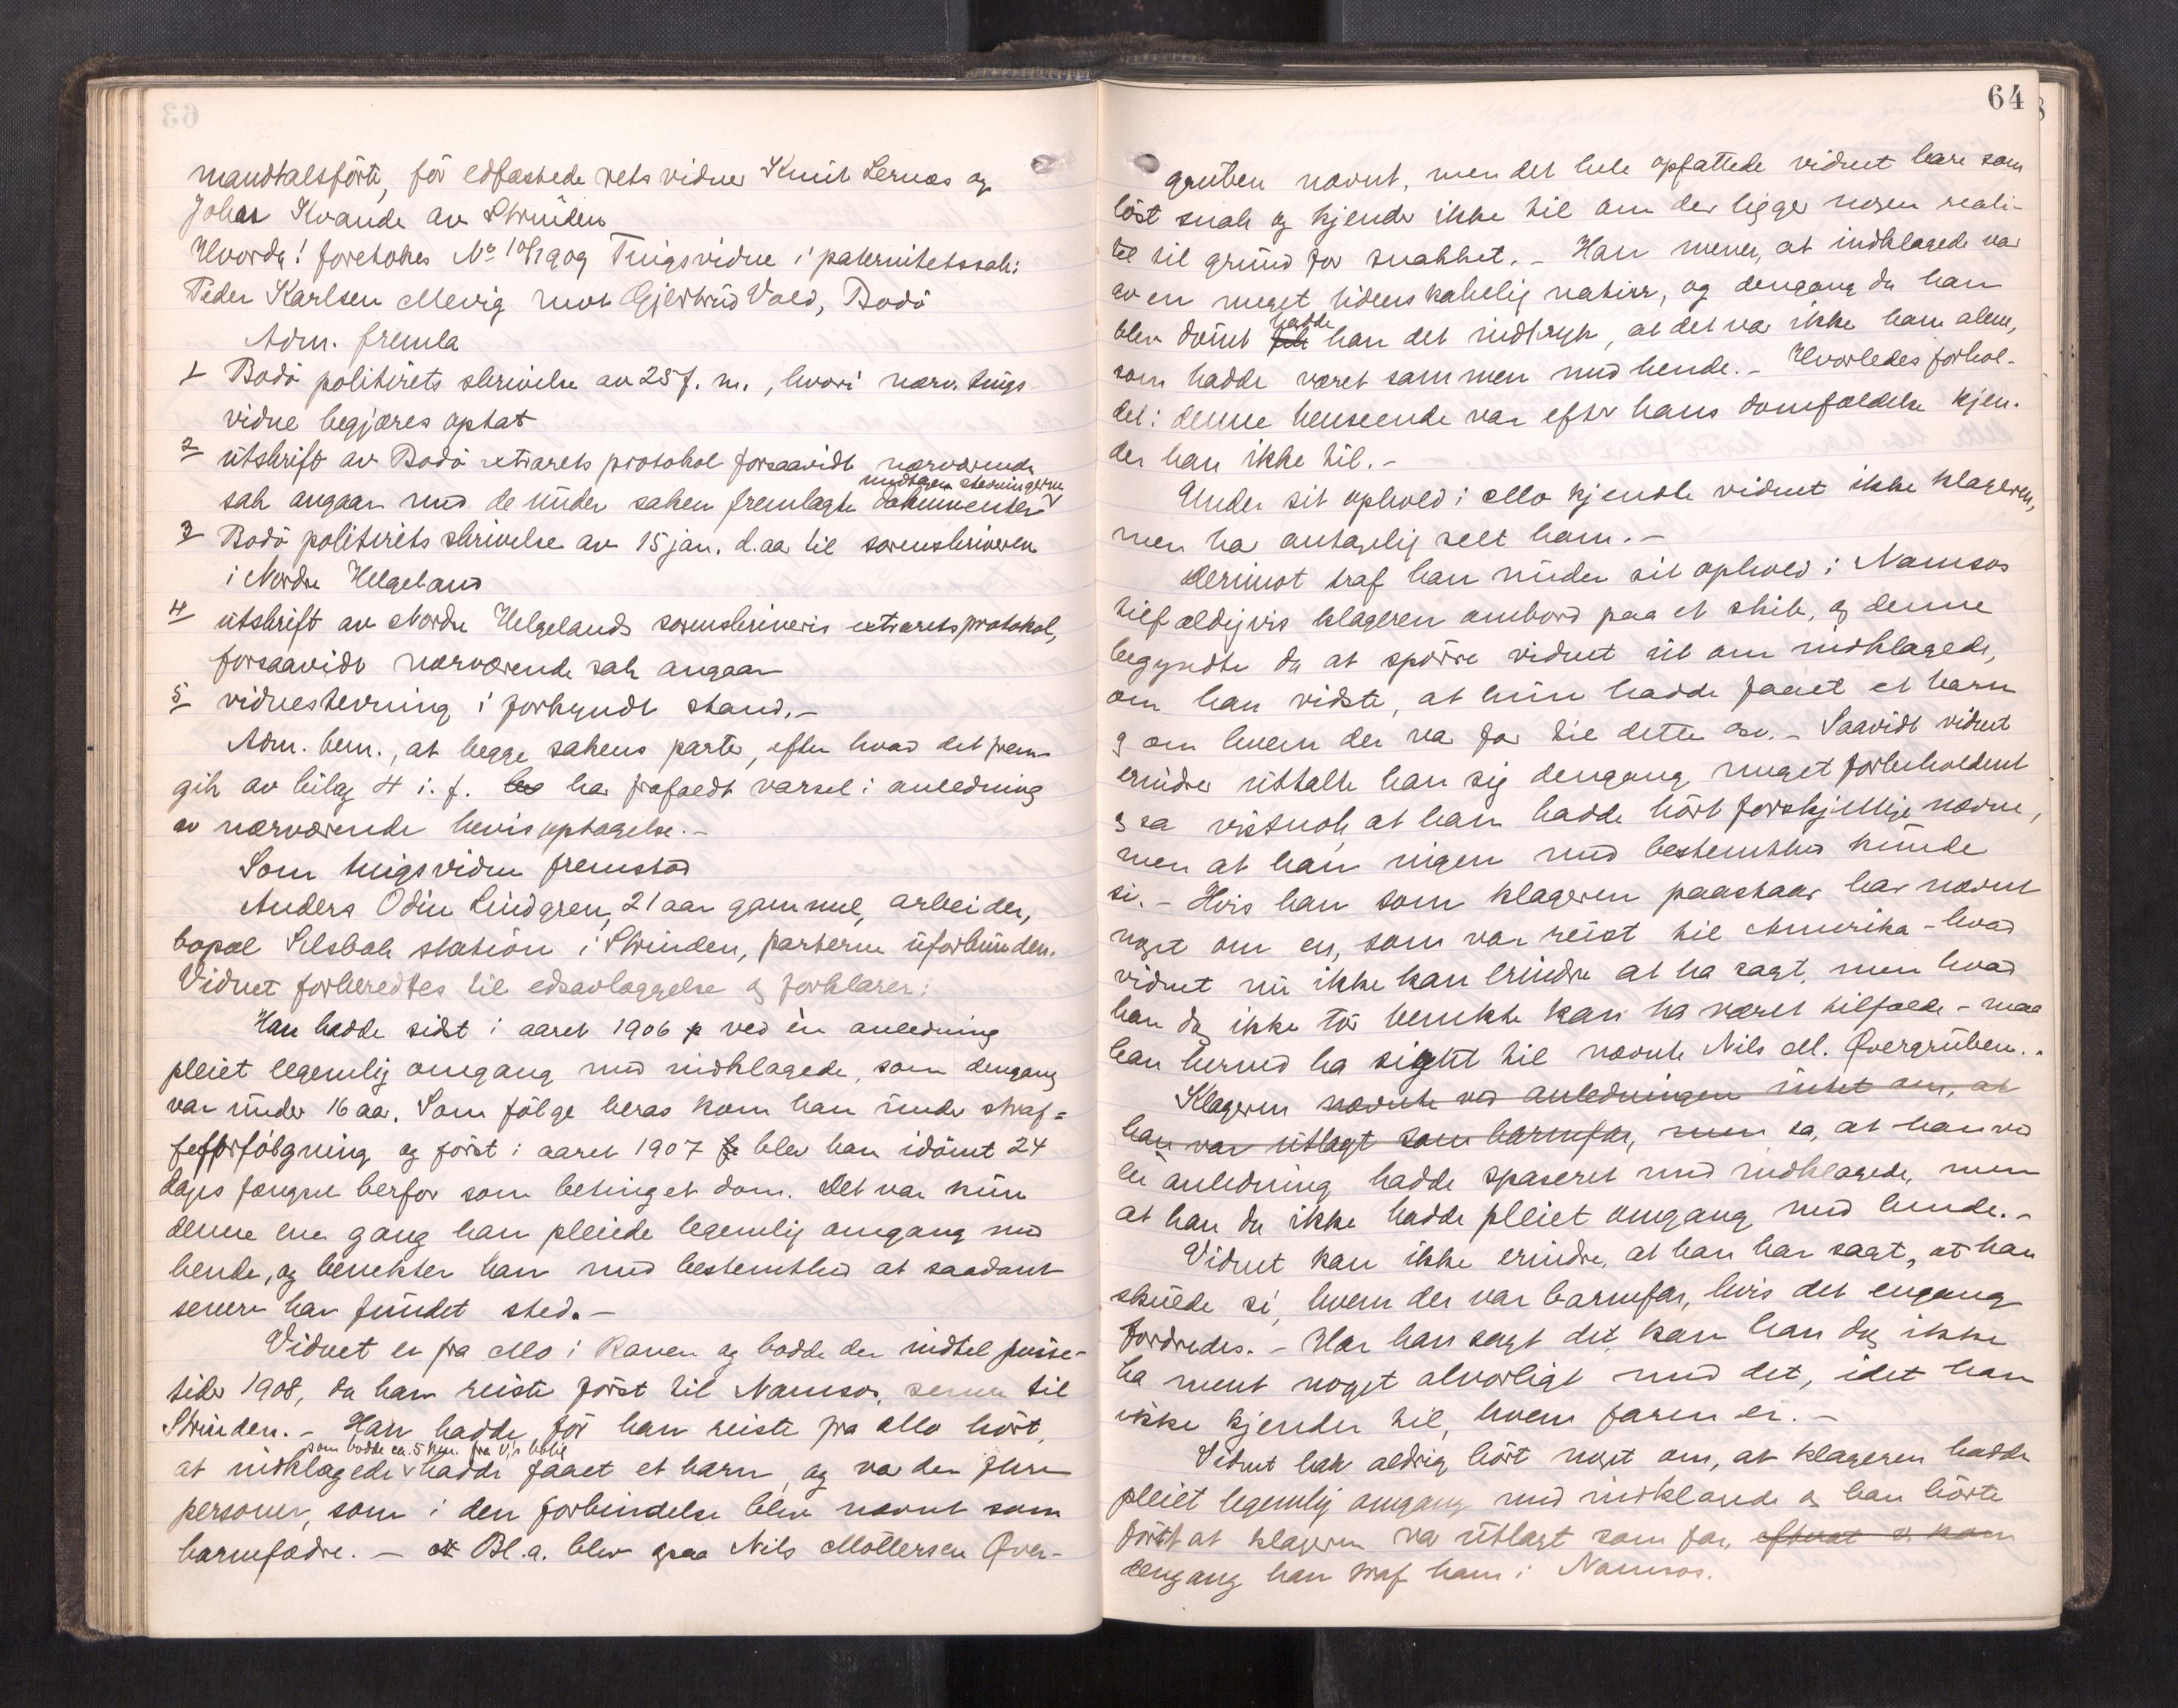 63
mandtalsförte, för edfæstede rets vidner Knut Lernæs og
Johan Kvande av Strinden
Hvorda! foretokes No 10/1909 Tingsvidne i paternitetssak:
Peder Karlsen Mevig mot Gjertrud Vold, Bodö
Adm. fremla
1 Bodö politirets skrivelse av 25 f. m., hvori nærv. tings
vidne begjæres optat
2 utskrift av Bodö extrarets protokol forsaavidt nærværende
undtagen stevningerne
sak angaar med de under saken fremlagte dokumenter v
3 Bodö politirets skrivelse av 15 jan. d.aa til sorenskriveren
i Nordre Helgeland
4 utskrift av Nordre Helgelands sorenskriveris extraretsprotokol,
forsaavidt nærværende sak angaar
5 vidnestevning i forkyndt stand.-
Adm. bem., at begge sakens parter, efter hvad det frem-
gik av bilag 4 i. f. har frafaldt varsel i anledning
av nærværende bevisoptagelse.-
Som tingsvidne fremstod
Anders Odin Lindgren, 21 aar gammel, arbeider,
bopæl Selsbak station i Strinden, parterne uforbunden.
Vidnet forberedtes til edsavlæggelse og forklarer:
Han hadde sidst i aaret 1906 ved én anledning
pleiet legemlig omgang med indklagede, som dengang
var under 16 aar. Som fölge heraf kom han under straf=
feforfölgning og först i aaret 1907 blev han idömt 24
dages fængsel herfor som betinget dom. Det var kun
denne ene gang han pleiede legemlig omgang med
hende, og benekter han med bestemthed at saadant
senere har fundet sted.-
Vidnet er fra Mo i Ranen og bodde der indtil pinse-
tider 1908, da han reiste först til Namsos, senere til
Strinden.- Han hadde för han reiste fra Mo hört,
som bodde ca. 5 km. fra v's bolig
at indklagede v hadde faaet et barn, og var der flere
personer, som i den forbindelse blev nævnt som
barnefædre. - Bl.a. blev ogsaa Nils Möllersen Över-
64
gruben nævnt, men det hele opfattede vidnet bare som
löst snak og kjender ikke til om der ligger nogen reali-
tet til grund for snakket.- Han mener, at indklagede var
av en meget lidenskabelig natur, og dengang da han
hadde
blev dömt fik han det indtryk, at det var ikke ham alene,
som hadde været sammen med hende.- Hvorledes forhol-
det i denne henseende var efter hans domfældelse kjen-
der han ikke til.-
Under sit ophold i Mo kjendte vidnet ikke klageren,
men har antagelig seet ham.-
Derimot traf han under sit ophold i Namsos
tilfældigvis klageren ombord paa et skib, og denne
begyndte da at spörre vidnet ut om indklagede,
om han vidste, at hun hadde faaet et barn
og om hvem der var far til dette osv.- Saavidt vidnet
erindrer uttalte han sig dengang meget forbeholdent
og sa vistnok at han hadde hört forskjellige nævne,
men at han ingen med bestemthed kunde
si.- Hvis han som klageren paastaar har nævnt
noget om en, som var reist til Amerika - hvad
vidnet nu ikke kan erindre at ha sagt, men hvad
han dog ikke tör benekte kan ha været tilfælde - maa
han herved ha sigtet til nævnte Nils M. Övergruben.-
Klageren nævnte ved anledningen intet om, at
han var utlagt som barnefar, men sa, at han ved
en anledning hadde spaseret med indklagede, men
at han da ikke hadde pleiet omgang med hende.-
Vidnet kan ikke erindre, at han har sagt, at han
skulde si, hvem der var barnefar, hvis det engang
fordredes.- Har han sagt det, kan han dog ikke
ha ment noget alvorligt med det, idet han
ikke kjender til, hvem faren er.-
Vidnet har aldrig hört noget om, at klageren hadde
pleiet legemlig omgang med indklagede og han hörte
först at klageren var utlagt som far, efterat v. kom
dengang han traf ham i Namsos.